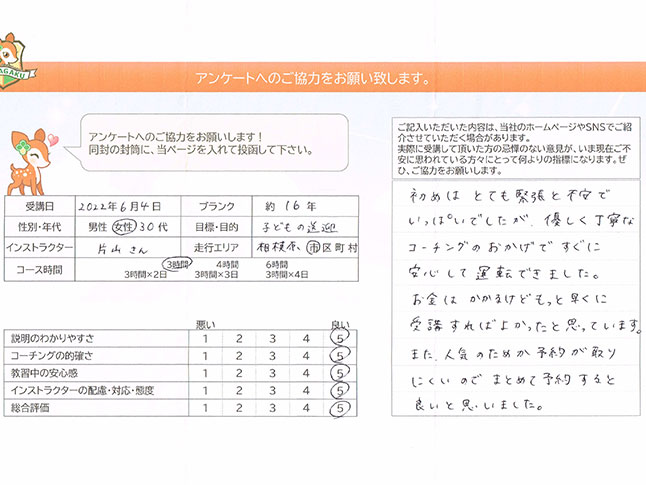 AGAKU
アンケートへのご協力をお願い致します。
アンケートへのご協力をお願いします！
同封の封筒に、当ページを入れて投函して下さい。
受講日 2022年6月4日 ブランク 約 16年
性別・年代 男性 女性 30代 目標・目的 子どもの送迎
インストラクター 片山さん 走行エリア 相模原、市区町村
コース時間 3時間 4時間 6時間
3時間×2日 3時間×3日 3時間×4日
悪い 良い
説明のわかりやすさ 1 2 3 4 5
コーチングの的確さ 1 2 3 4 5
教習中の安心感 1 2 3 4 5
インストラクターの配慮・対応・態度 1 2 3 4 5
総合評価 1 2 3 4 5
ご記入いただいた内容は、当社のホームページやSNSでご紹
介させていただく場合があります。
実際に受講して頂いた方の忌憚のない意見が、いま現在ご不
安に思われている方々にとって何よりの指標になります。ぜ
ひ、ご協力をお願いします。
初めは とても緊張と不安で
いっぱいでしたが、優しく丁寧な
コーチングのおかげですぐに
安心して運転できました。
お金はかかるけどもっと早くに
受講すればよかったと思っています。
また、人気のためか予約が取り
にくいので まとめて予約すると
良いと思いました。